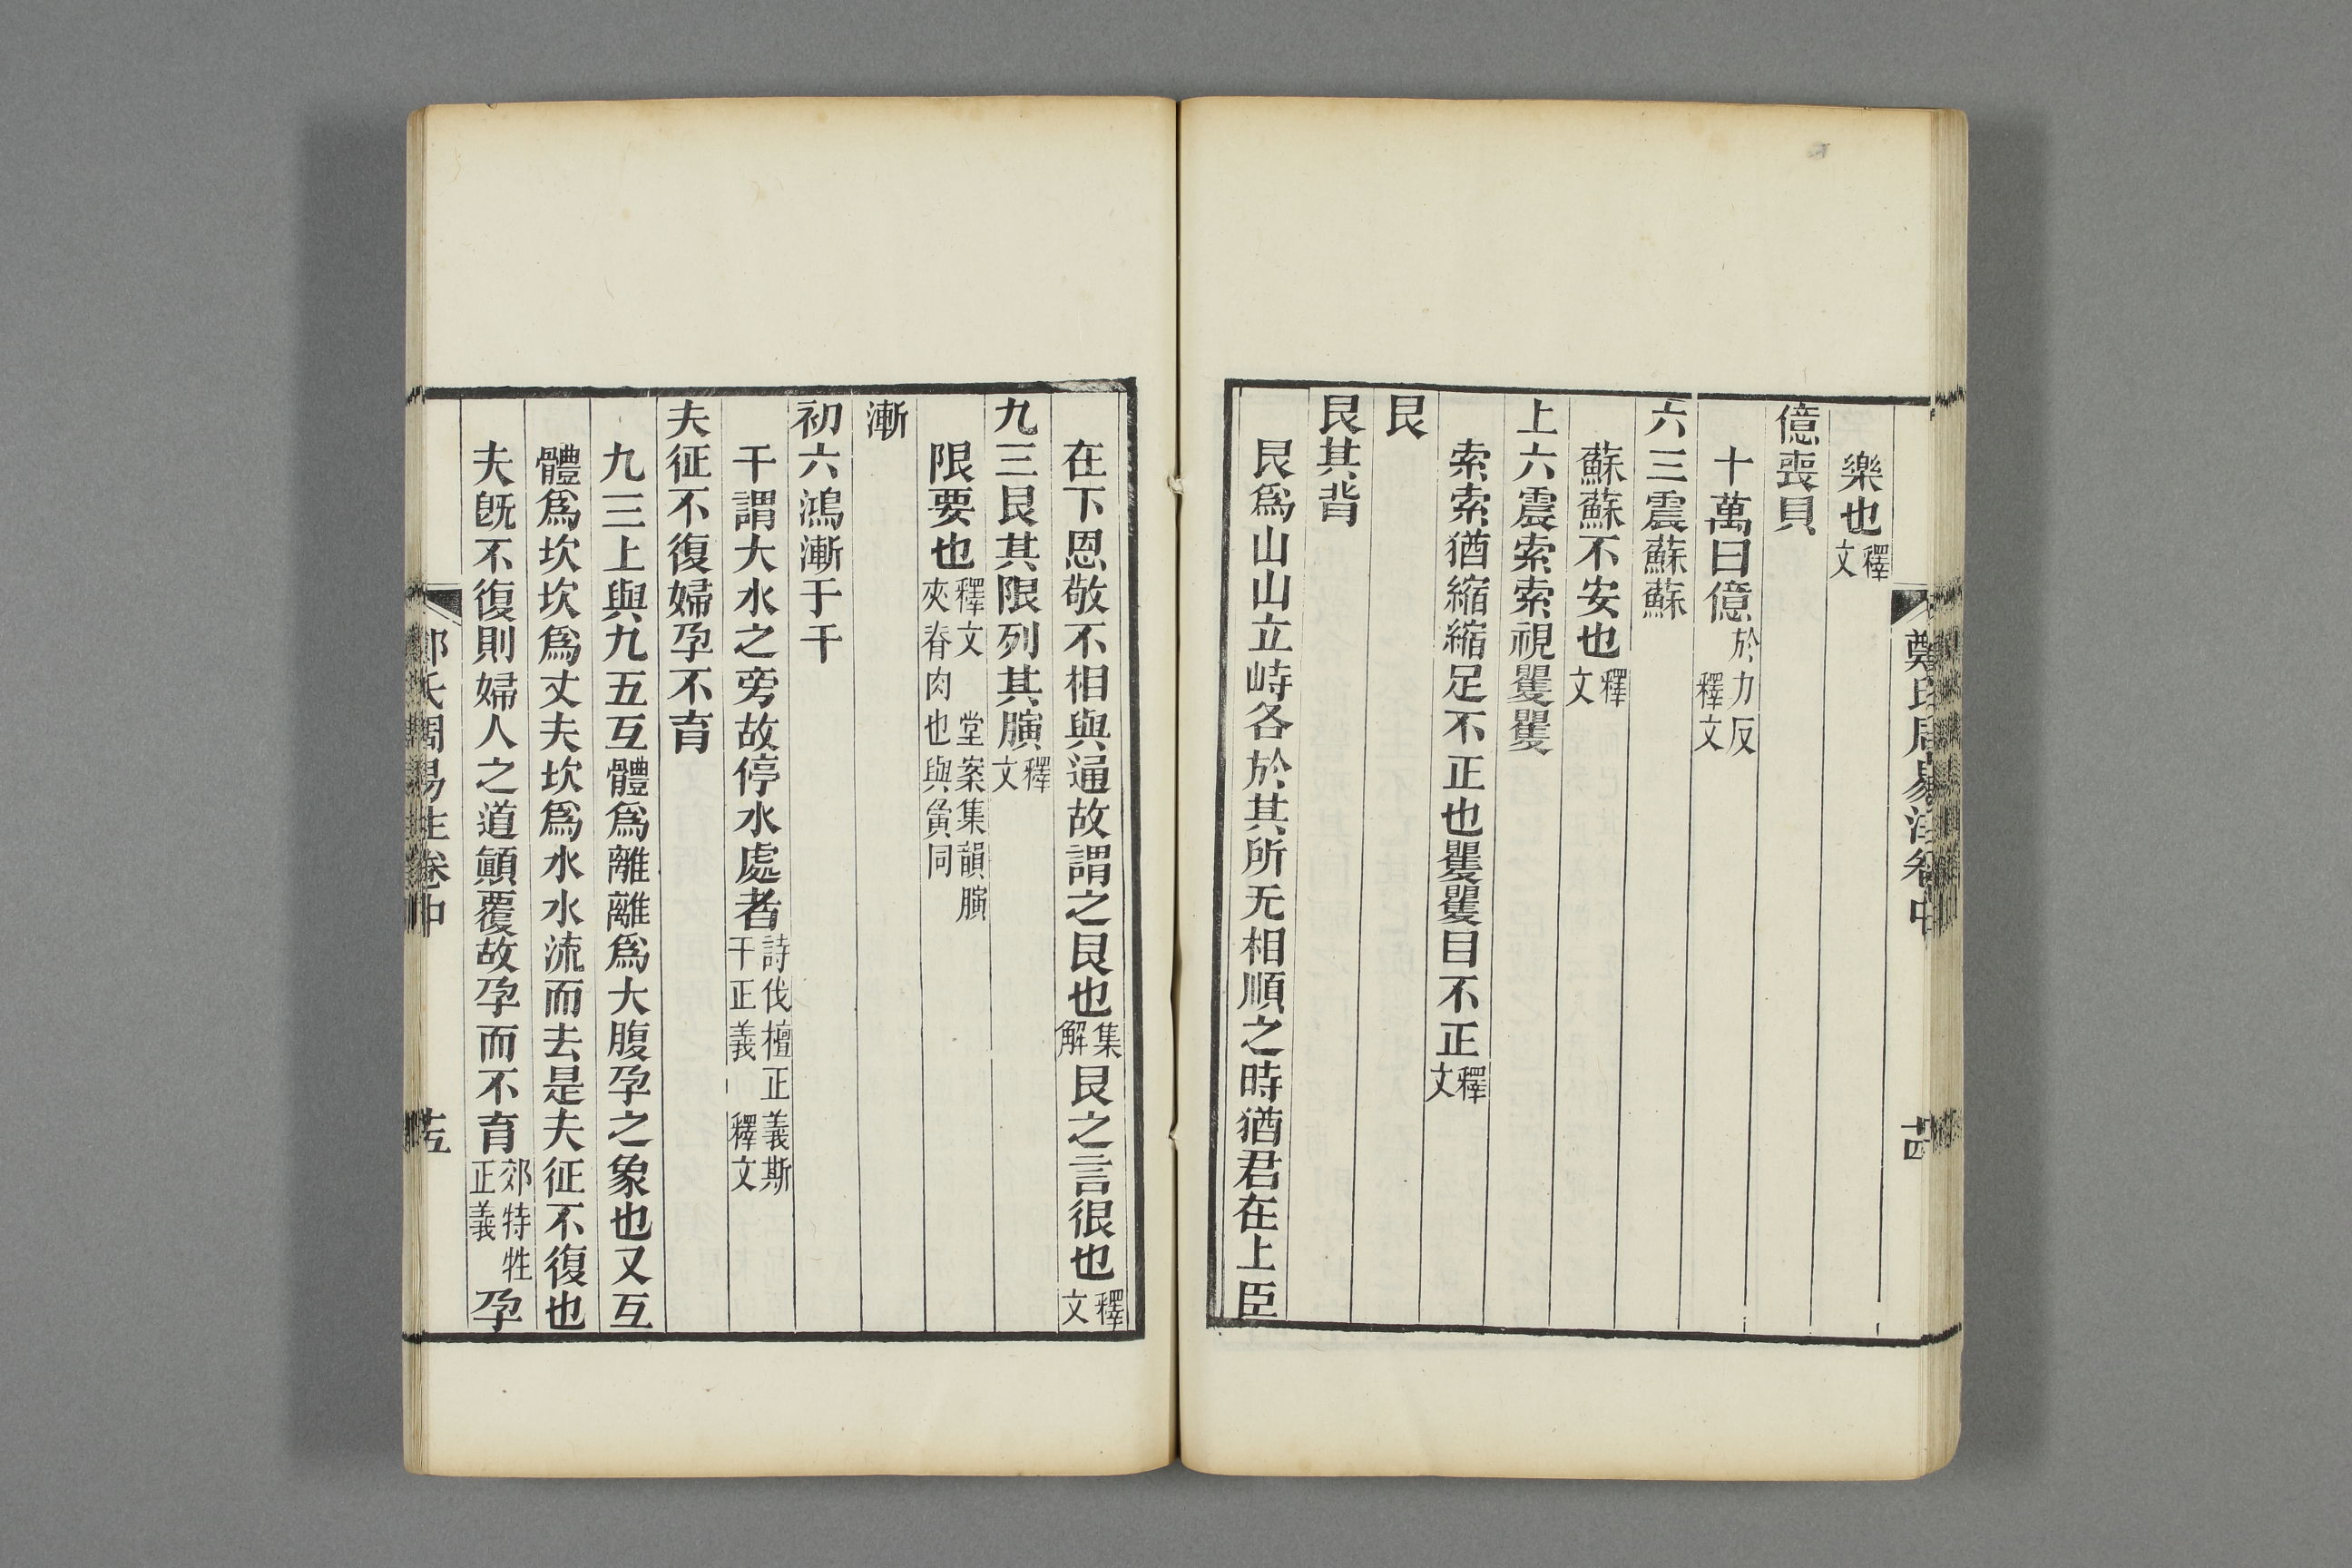 樂也釋文
億喪貝
十萬曰億於力反釋文
六三震蘇蘇
蘇蘇不安也釋文
上六震索索視矍矍
索索猶縮縮足不正也矍矍目不正釋文
艮
艮其背
艮爲山山立峙各於其所无相順之時猶君在上臣
在下恩敬不相與通故謂之艮也集解艮之言很也釋文
九三艮其限列其䐄釋文
限要也釋文 堂案集韻䐄夾脊肉也與夤同
漸
初六鴻漸于干
干謂大水之旁故停水處者詩伐檀正義斯干正義 釋文
夫征不復婦孕不育
九三上與九五互體爲離離爲大腹孕之象也又互
體爲坎坎爲丈夫坎爲水水流而去是夫征不復也
夫旣不復則婦人之道顚覆故孕而不育郊特牲正義孕
鄭氏周易注卷中